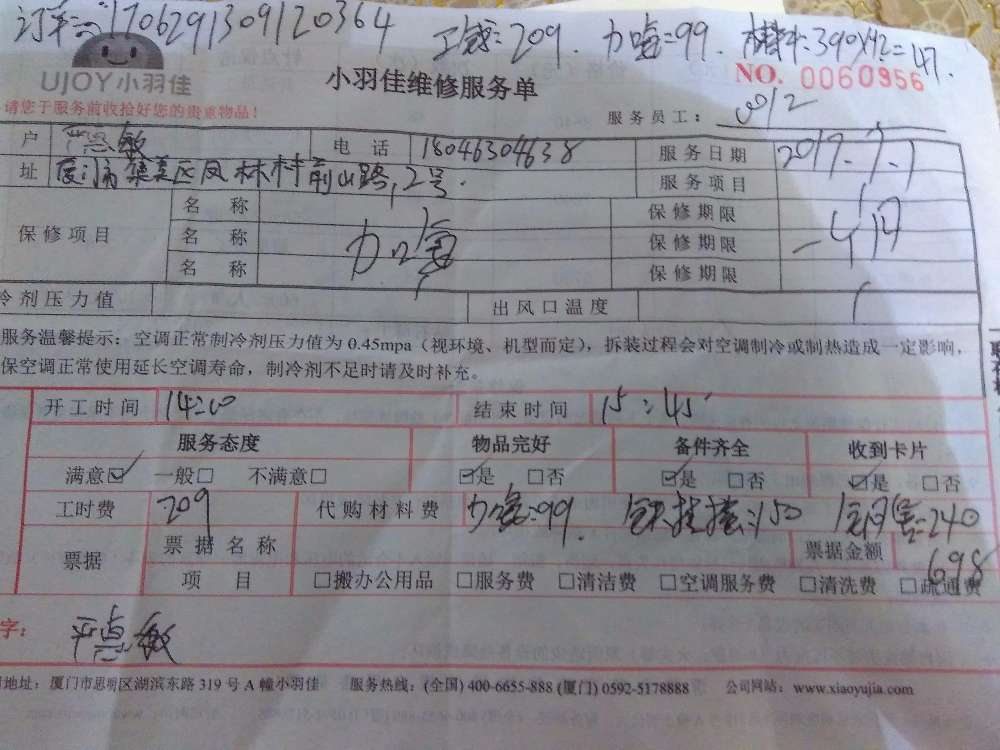 订单号17062913091 20364 工费:209. 加氟=99.
UJOY小羽佳
小羽佳维修服务单
NO. 0060956
请您于服务前收拾好您的贵重物品！
服务员工：
户 电话 18046304638 服务日期 2017.7.1
址 厦门集美区凤林村前山路,2号. 服务项目
保修项目
名称 保修期限
名称 加氟 保修期限 一个月
名称 保修期限
冷剂压力值 出风口温度
服务温馨提示：空调正常制冷剂压力值为 0.45mpa（视环境、机型而定），拆装过程会对空调制冷或制热造成一定影响，
保空调正常使用延长空调寿命，制冷剂不足时请及时补充。
开工时间 14:20 结束时间 15:45
服务态度 物品完好 备件齐全 收到卡片
满意☑ 一般□ 不满意□ ☑是 □否 ☑是 □否 ☑是 □否
工时费 209 代购材料费 加氟=99. =150 =240
票据 票据名称 票据金额 698
项目 □搬办公用品 □服务费 □清洁费 □空调服务费 □清洗费 □疏通费
字：
地址：厦门市思明区湖滨东路 319 号 A 幢小羽佳 服务热线：(全国) 400-6655-888 (厦门) 0592-5178888 公司网站：www.xiaoyujia.com